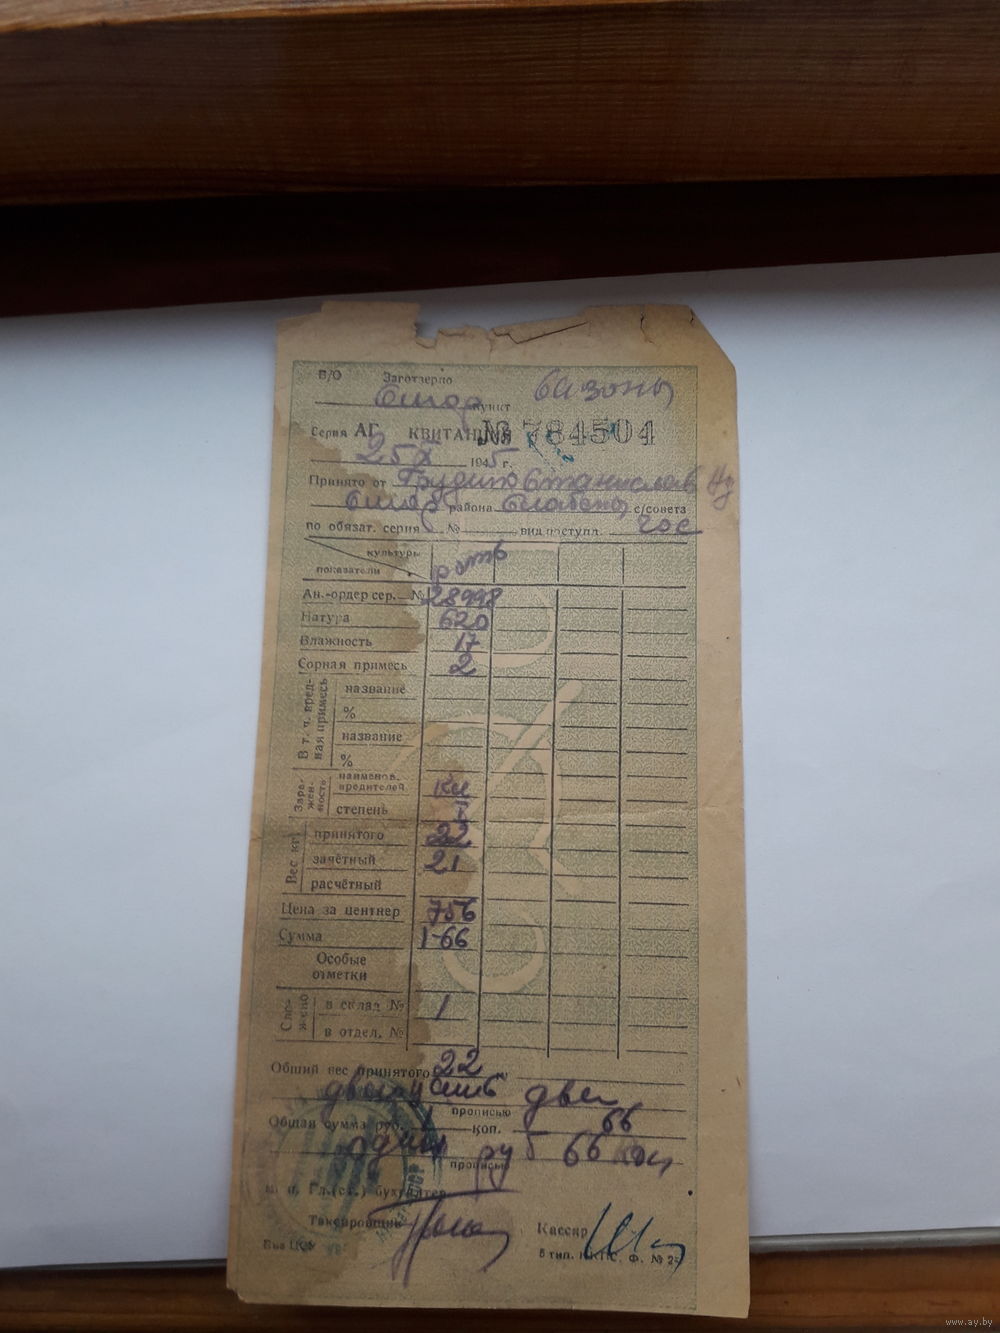 В/О Заготзерно
пункт
Серия АГ КВИТАНЦИЯ № 784504
25 X 1945 г.
Принято от Станислав
района с/совета
по обязат. серия № вид поступл. гос
культуры
показатели
Ан.-ордер сер. № 28998
Натура 620
Влажность 17
Сорная примесь 2
В т. ч. вредная примесь
название
%
название
%
Зараженность
наименов. вредителей Кл
степень I
Вес кг.
принятого 22
зачётный 21
расчётный
Цена за центнер 756
Сумма 1-66
Особые отметки
Сложено
в склад № 1
в отдел. №
Общий вес принятого 22
двадцать два
прописью
Общая сумма руб. 1 коп. 66
один руб 66 коп
прописью
Гл. (ст.) бухгалтер
Таксировщик
Кассир
5 тип. Ф. № 25
www.ay.by